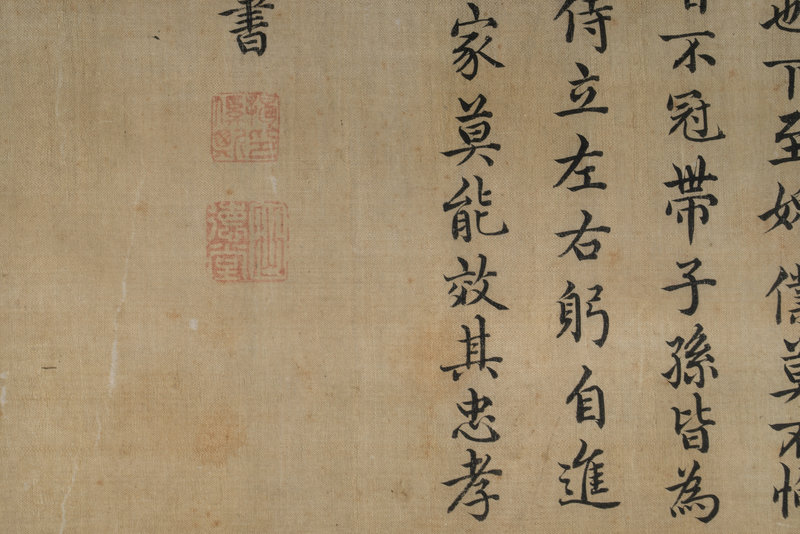 也下至莫不
不冠帶子孫皆為
侍立左右躬自進
家莫能效其忠孝
書